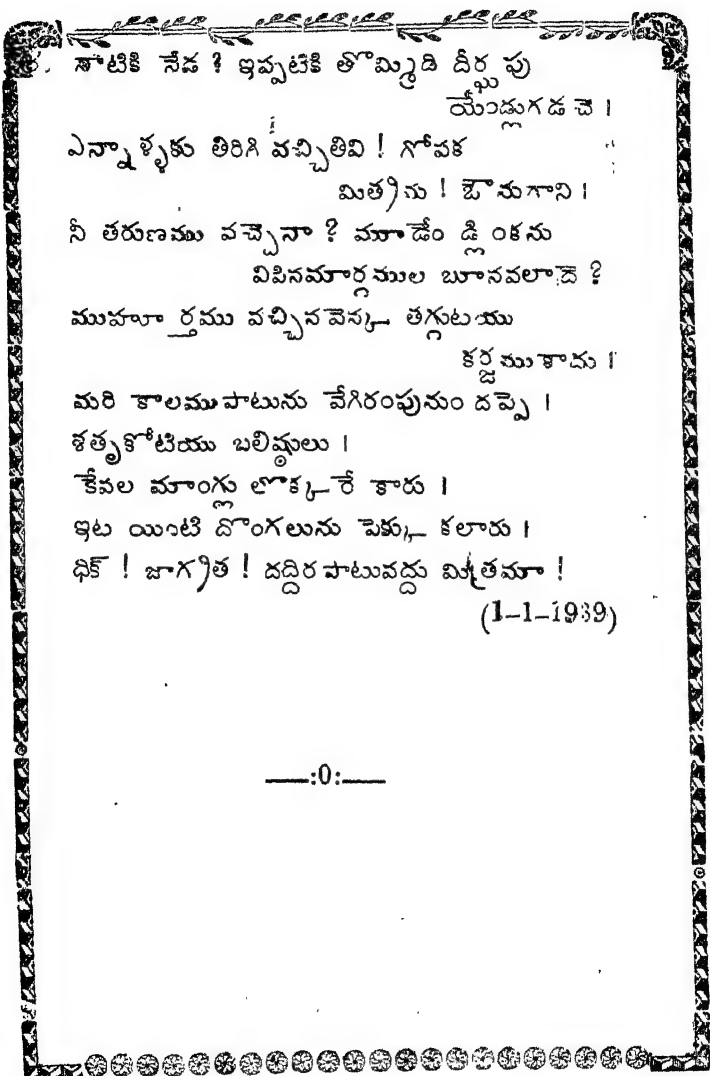 నాటికి నేడ ? ఇప్పటికి తొమ్మిడి దీర్ఘపు
యేండ్లుగడచె ।
ఎన్నాళ్ళకు తిరిగి వచ్చితివి ! గోపక
మిత్రిను ! ఔనుగాని ।
నీ తరుణము వచ్చెనా ? మూడేం డ్లింకను
విపినమార్గముల బూనవలాదె ?
ముహూర్తము వచ్చినవెన్క తగ్గుటయు
కర్జముకాదు ।
మరి కాలముపాటును వేగిరంపునుం దప్పె ।
శతృకోటియు బలిష్ఠులు ।
కేవల మాంగ్లు లొక్కరే కారు ।
ఇట యింటి దొంగలును పెక్కు కలారు ।
ధిక్ ! జాగ్రిత ! దద్దిరపాటువద్దు మిత్రమా !
(1-1-1939)
——:0:——